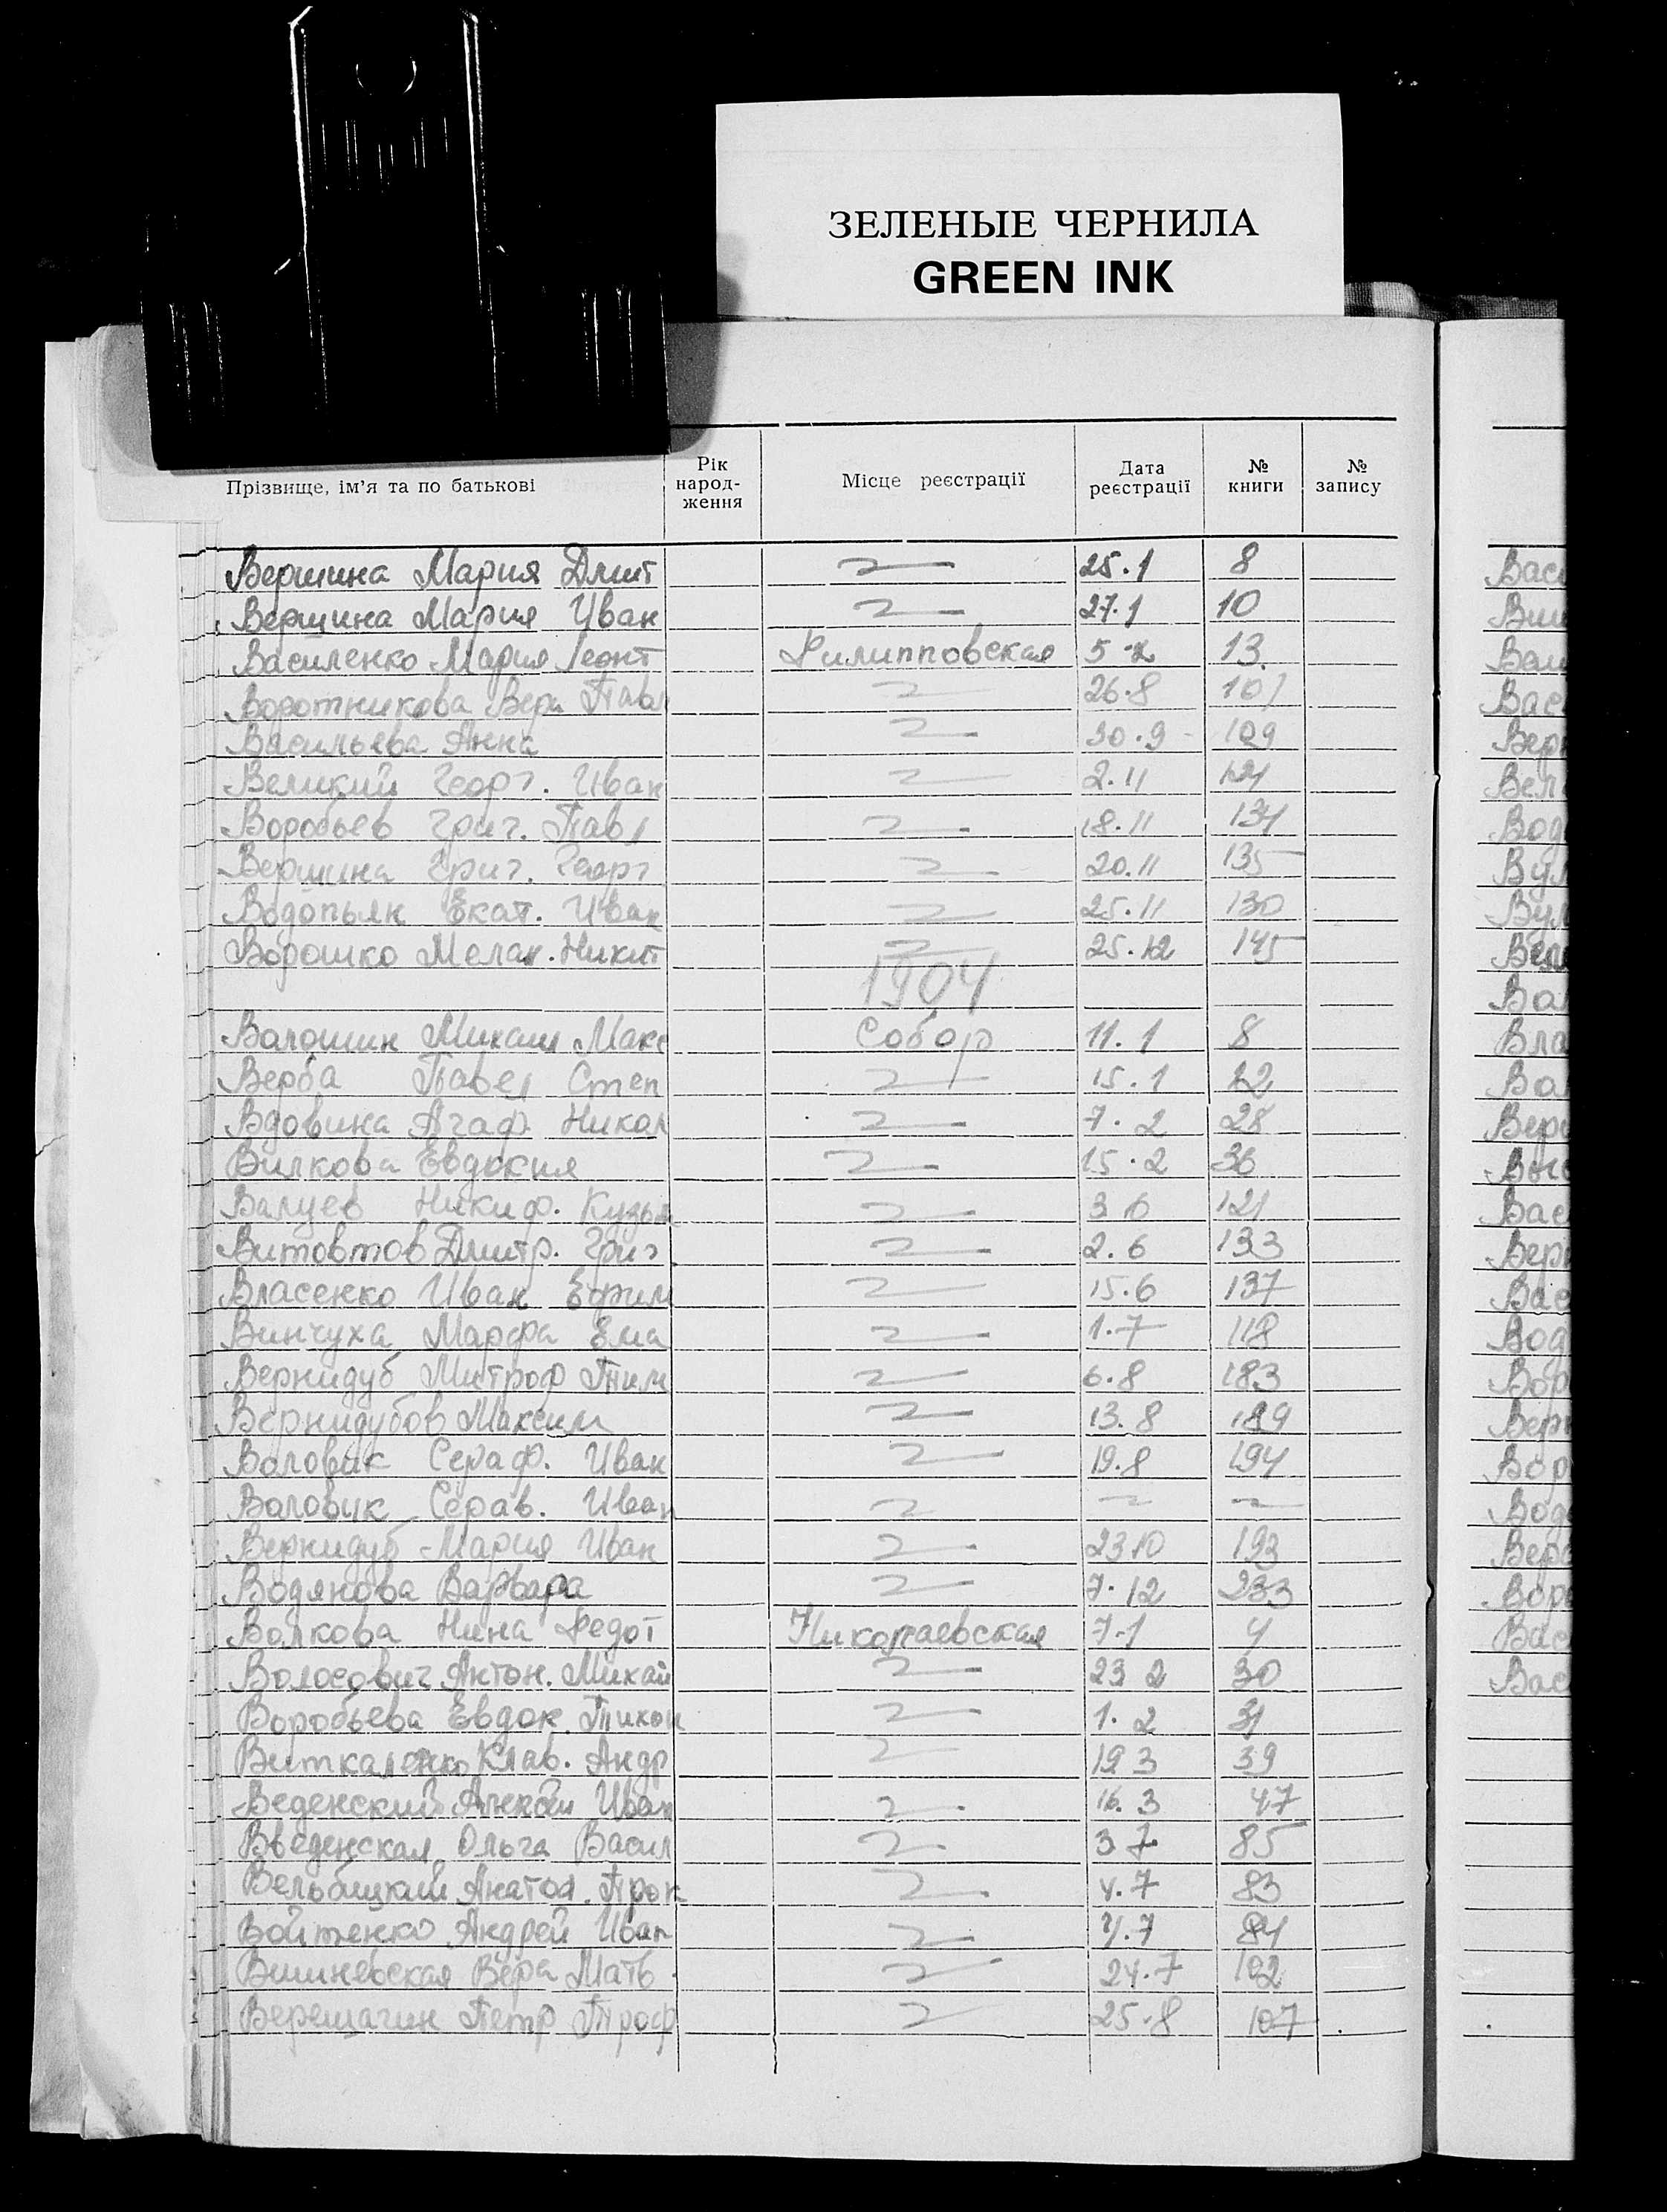 ЗЕЛЕНЫЕ ЧЕРНИЛА
GREEN INK
Прізвище, ім'я та по батькові Рік народ- ження Місце реєстрації Дата реєстрації № книги № запису
Вершина Мария Дмит 25.1 8
Вершина Мария Иван 27.1 10
Василенко Мария Леонт Филипповская 5 2 13
Воротникова Вера Павл 26.8 101
Васильева Анна 30.9 109
Великий Георг. Иван 2.11 121
Воробьев Григ. Павл 18.11 134
Вершина Григ. Георг 20.11 135
Водопьян Екат. Иван 25.11 130
Ворошко Мелан. Никит 25.12 145
1904
Валошин Михаил Макс Собор 11.1 8
Верба Павел Степ 15.1 12
Вдовина Агаф. Никол 7.2 28
Вилкова Евдокия 15.2 36
Валуев Никиф. Кузьм 121
Витовтов Дмитр. Григ 2.6 133
Власенко Иван Ефим 15.6 137
Винчуха Марфа 1.7 118
Вернидуб Митроф Тим 6.8 183
Вернидубов Максим 13.8 189
Воловик Сераф. Иван 19.8 194
Воловик Серав. Иван
Вернидуб Мария Иван 23.10 193
Водянова Варвара 7.12 233
Волкова Нина Федот Николаевская 7.1 4
Волосович Антон. Михай 23 2 30
Воробьева Евдок. Тихон 1.2 31
Виткаленко Клав. Андр 19 3 39
Веденский Алексей Иван 16.3 47
Введенская Ольга Васил 3 7 85
Вельбицкий Анатол. Прок 4.7 83
Войтенко Андрей Иван 4.7 84
Вишневская Вера Матв. 24.7 102
Верещагин Петр Троф 25.8 107
Васи
Виш
Вели
Васи
Верн
Вели
Вод
Вул
Вул
Вла
Вер
Вас
Верн
Вас
Вод
Вор
Верн
Вор
Вод
Вер
Вор
Вас
Вас